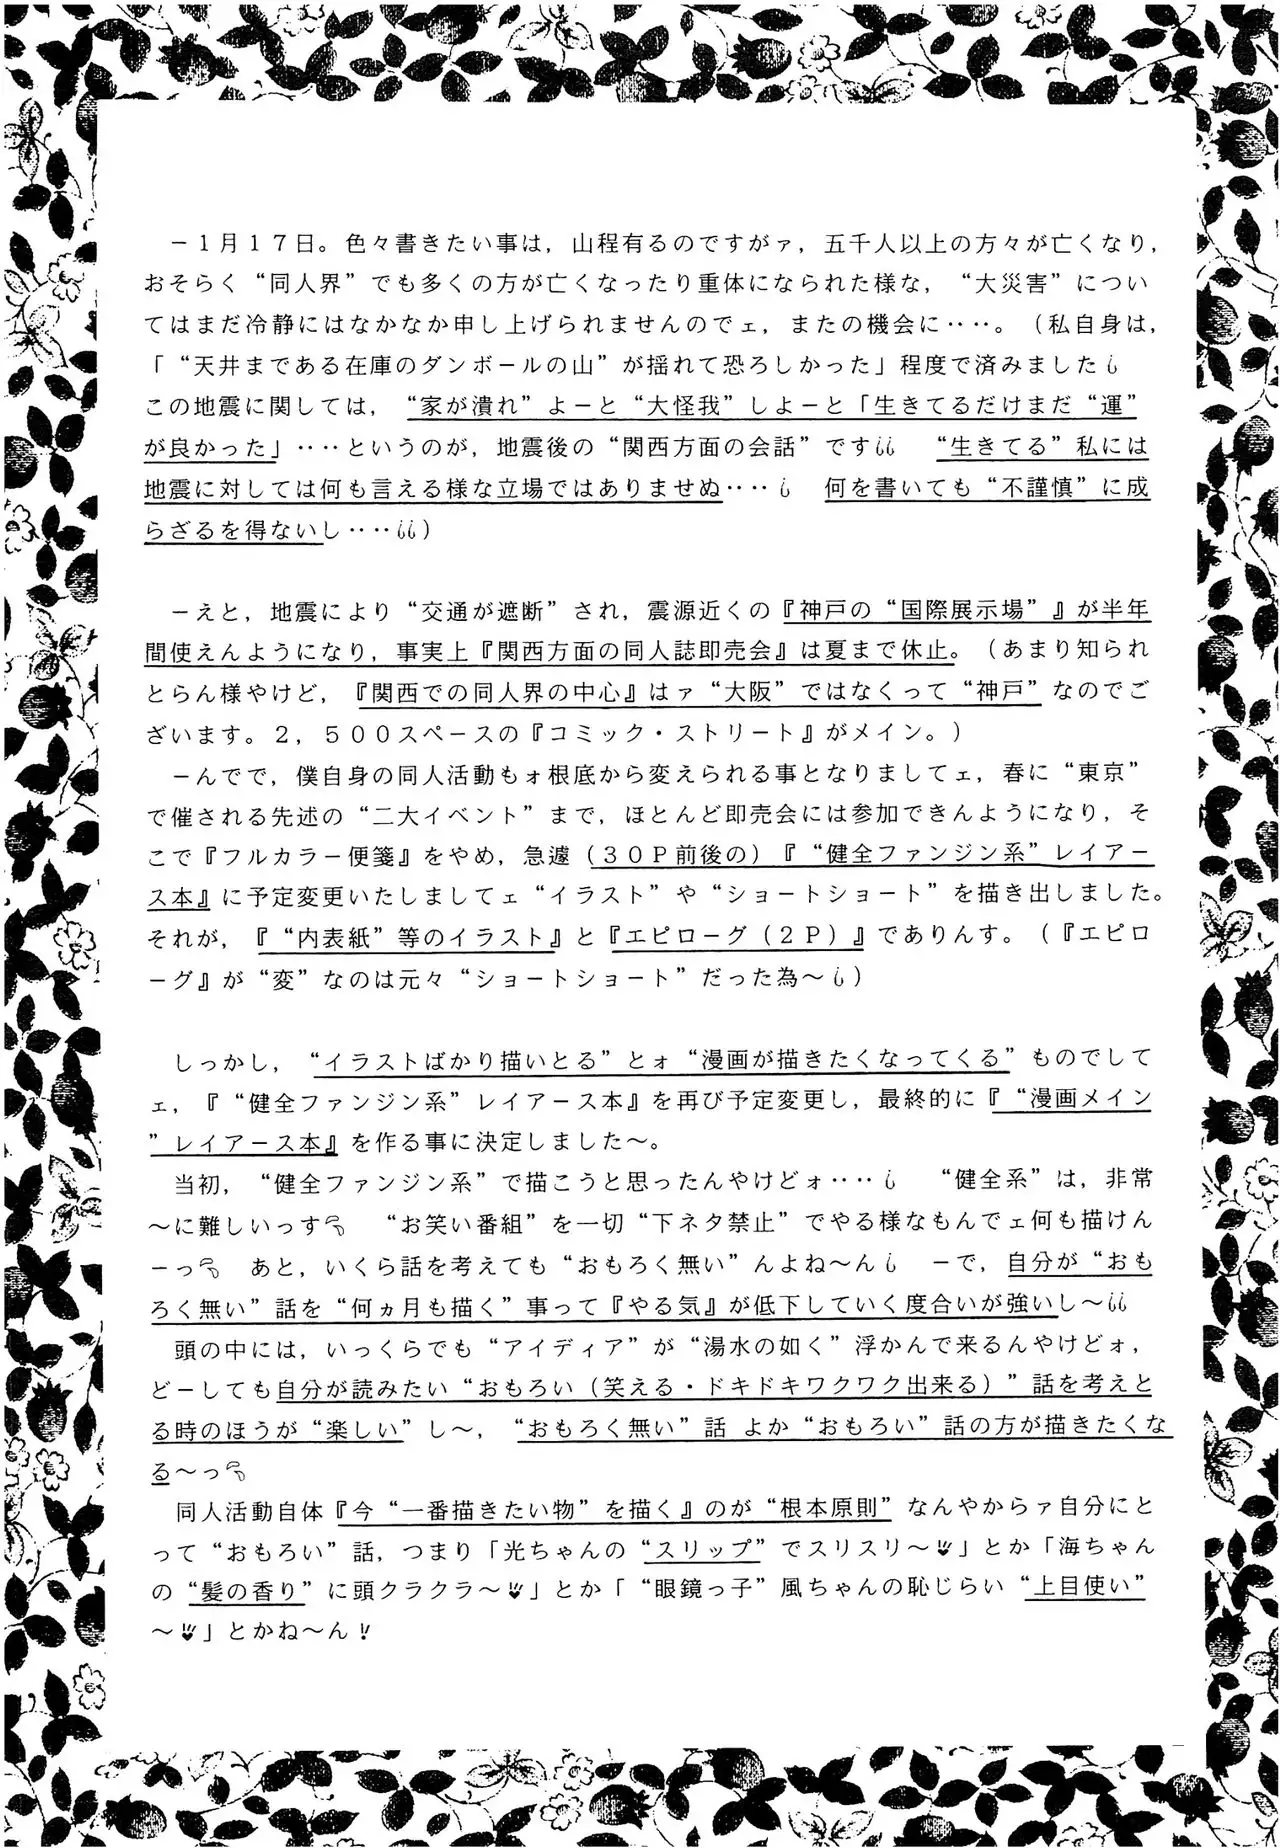 －１月１７日。色々書きたい事は，山程有るのですがァ，五千人以上の方々が亡くなり，
おそらく“同人界”でも多くの方が亡くなったり重体になられた様な，“大災害”につい
てはまだ冷静にはなかなか申し上げられませんのでェ，またの機会に‥‥。（私自身は，
「“天井まである在庫のダンボールの山”が揺れて恐ろしかった」程度で済みました💧
この地震に関しては，“家が潰れ”よーと“大怪我”しよーと「生きてるだけまだ“運”
が良かった」‥‥というのが，地震後の“関西方面の会話”です💧💧　“生きてる”私には
地震に対しては何も言える様な立場ではありませぬ‥‥💧　何を書いても“不謹慎”に成
らざるを得ないし‥‥💧💧）
－えと，地震により“交通が遮断”され，震源近くの『神戸の“国際展示場”』が半年
間使えんようになり，事実上『関西方面の同人誌即売会』は夏まで休止。（あまり知られ
とらん様やけど，『関西での同人界の中心』はァ“大阪”ではなくって“神戸”なのでご
ざいます。２，５００スペースの『コミック・ストリート』がメイン。）
－んでで，僕自身の同人活動もォ根底から変えられる事となりましてェ，春に“東京”
で催される先述の“二大イベント”まで，ほとんど即売会には参加できんようになり，そ
こで『フルカラー便箋』をやめ，急遽（３０Ｐ前後の）『“健全ファンジン系”レイアー
ス本』に予定変更いたしましてェ“イラスト”や“ショートショート”を描き出しました。
それが，『“内表紙”等のイラスト』と『エピローグ（２Ｐ）』でありんす。（『エピロ
ーグ』が“変”なのは元々“ショートショート”だった為～💧）
しっかし，“イラストばかり描いとる”とォ“漫画が描きたくなってくる”ものでして
ェ，『“健全ファンジン系”レイアース本』を再び予定変更し，最終的に『“漫画メイン
”レイアース本』を作る事に決定しました～。
当初，“健全ファンジン系”で描こうと思ったんやけどォ‥‥💧　“健全系”は，非常
～に難しいっす　“お笑い番組”を一切“下ネタ禁止”でやる様なもんでェ何も描けん
ーっ　あと，いくら話を考えても“おもろく無い”んよね～ん💧　ーで，自分が“おも
ろく無い”話を“何ヵ月も描く”事って『やる気』が低下していく度合いが強いし～💧💧
頭の中には，いっくらでも“アイディア”が“湯水の如く”浮かんで来るんやけどォ，
どーしても自分が読みたい“おもろい（笑える・ドキドキワクワク出来る）”話を考えと
る時のほうが“楽しい”し～，“おもろく無い”話 よか“おもろい”話の方が描きたくな
る～っ
同人活動自体『今“一番描きたい物”を描く』のが“根本原則”なんやからァ自分にと
って“おもろい”話，つまり「光ちゃんの“スリップ”でスリスリ～」とか「海ちゃん
の“髪の香り”に頭クラクラ～」とか「“眼鏡っ子”風ちゃんの恥じらい“上目使い”
～」とかね～ん！